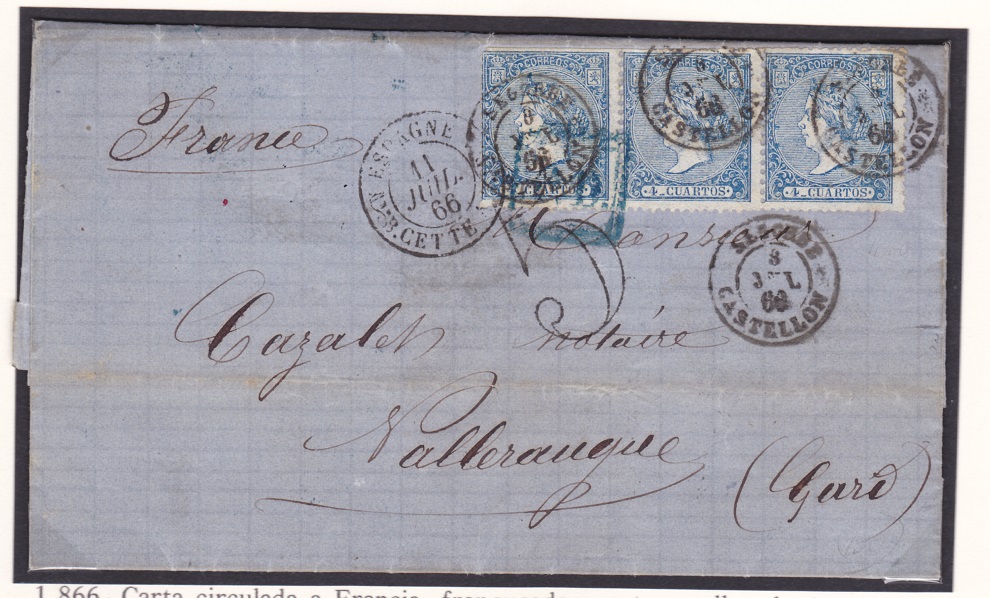 France
CORREOS
4 CUARTOS
CORREOS
4 CUARTOS
CORREOS
4 CUARTOS
CASTELLON
CASTELLON
ESPAGNE
11
JUIL.
66
CETTE
8
JUL
66
CASTELLON
Monsieur
Cazalet notaire
Valleraugue
(Gard)
1.866. Carta circulada a Francia,